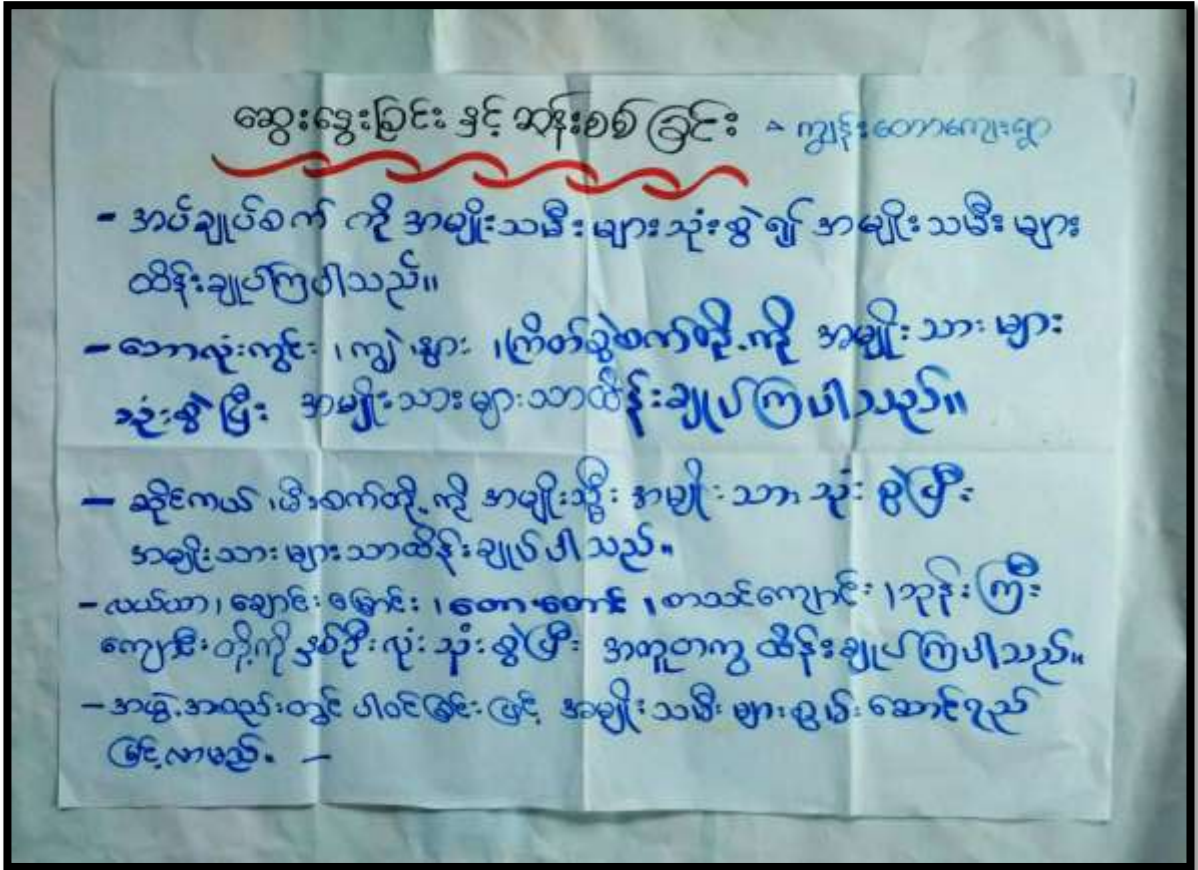 ဆွေးနွေးခြင်း နှင့် ဆန်းစစ်ခြင်း - ကျွန်းတောကျေးရွာ
- အပ်ချုပ်စက် ကို အမျိုးသမီးများသုံးစွဲ၍ အမျိုးသမီး များ
ထိန်းချုပ်ကြပါသည်။
- ဘောလုံးကွင်း ၊ ကျွဲ ၊ နွား ၊ ကြိတ်ခွဲစက်တို့.ကို အမျိုးသား များ
သုံးစွဲ ပြီး အမျိုးသားများသာထိန်းချုပ်ကြပါသည်။
- ဆိုင်ကယ် ၊ မီးစက်တို့.ကို အမျိုးသ္မီး အမျိုးသား သုံး စွဲပြီး
အမျိုးသားများသာထိန်းချုပ်ပါသည်။
- လယ်ယာ ၊ ချောင်းမြောင်း ၊ တောတောင် ၊ စာသင်ကျောင်း ၊ ဘုန်းကြီး
ကျောင်းတို့ကို နှစ်ဦးလုံး သုံးစွဲပြီး အတူတကွ ထိန်းချုပ်ကြပါသည်။
- အဖွဲ.အစည်းတွင် ပါဝင်ခြင်းဖြင့် အမျိုးသမီးများစွမ်းဆောင်ရည်
မြင့်လာမည်။ -